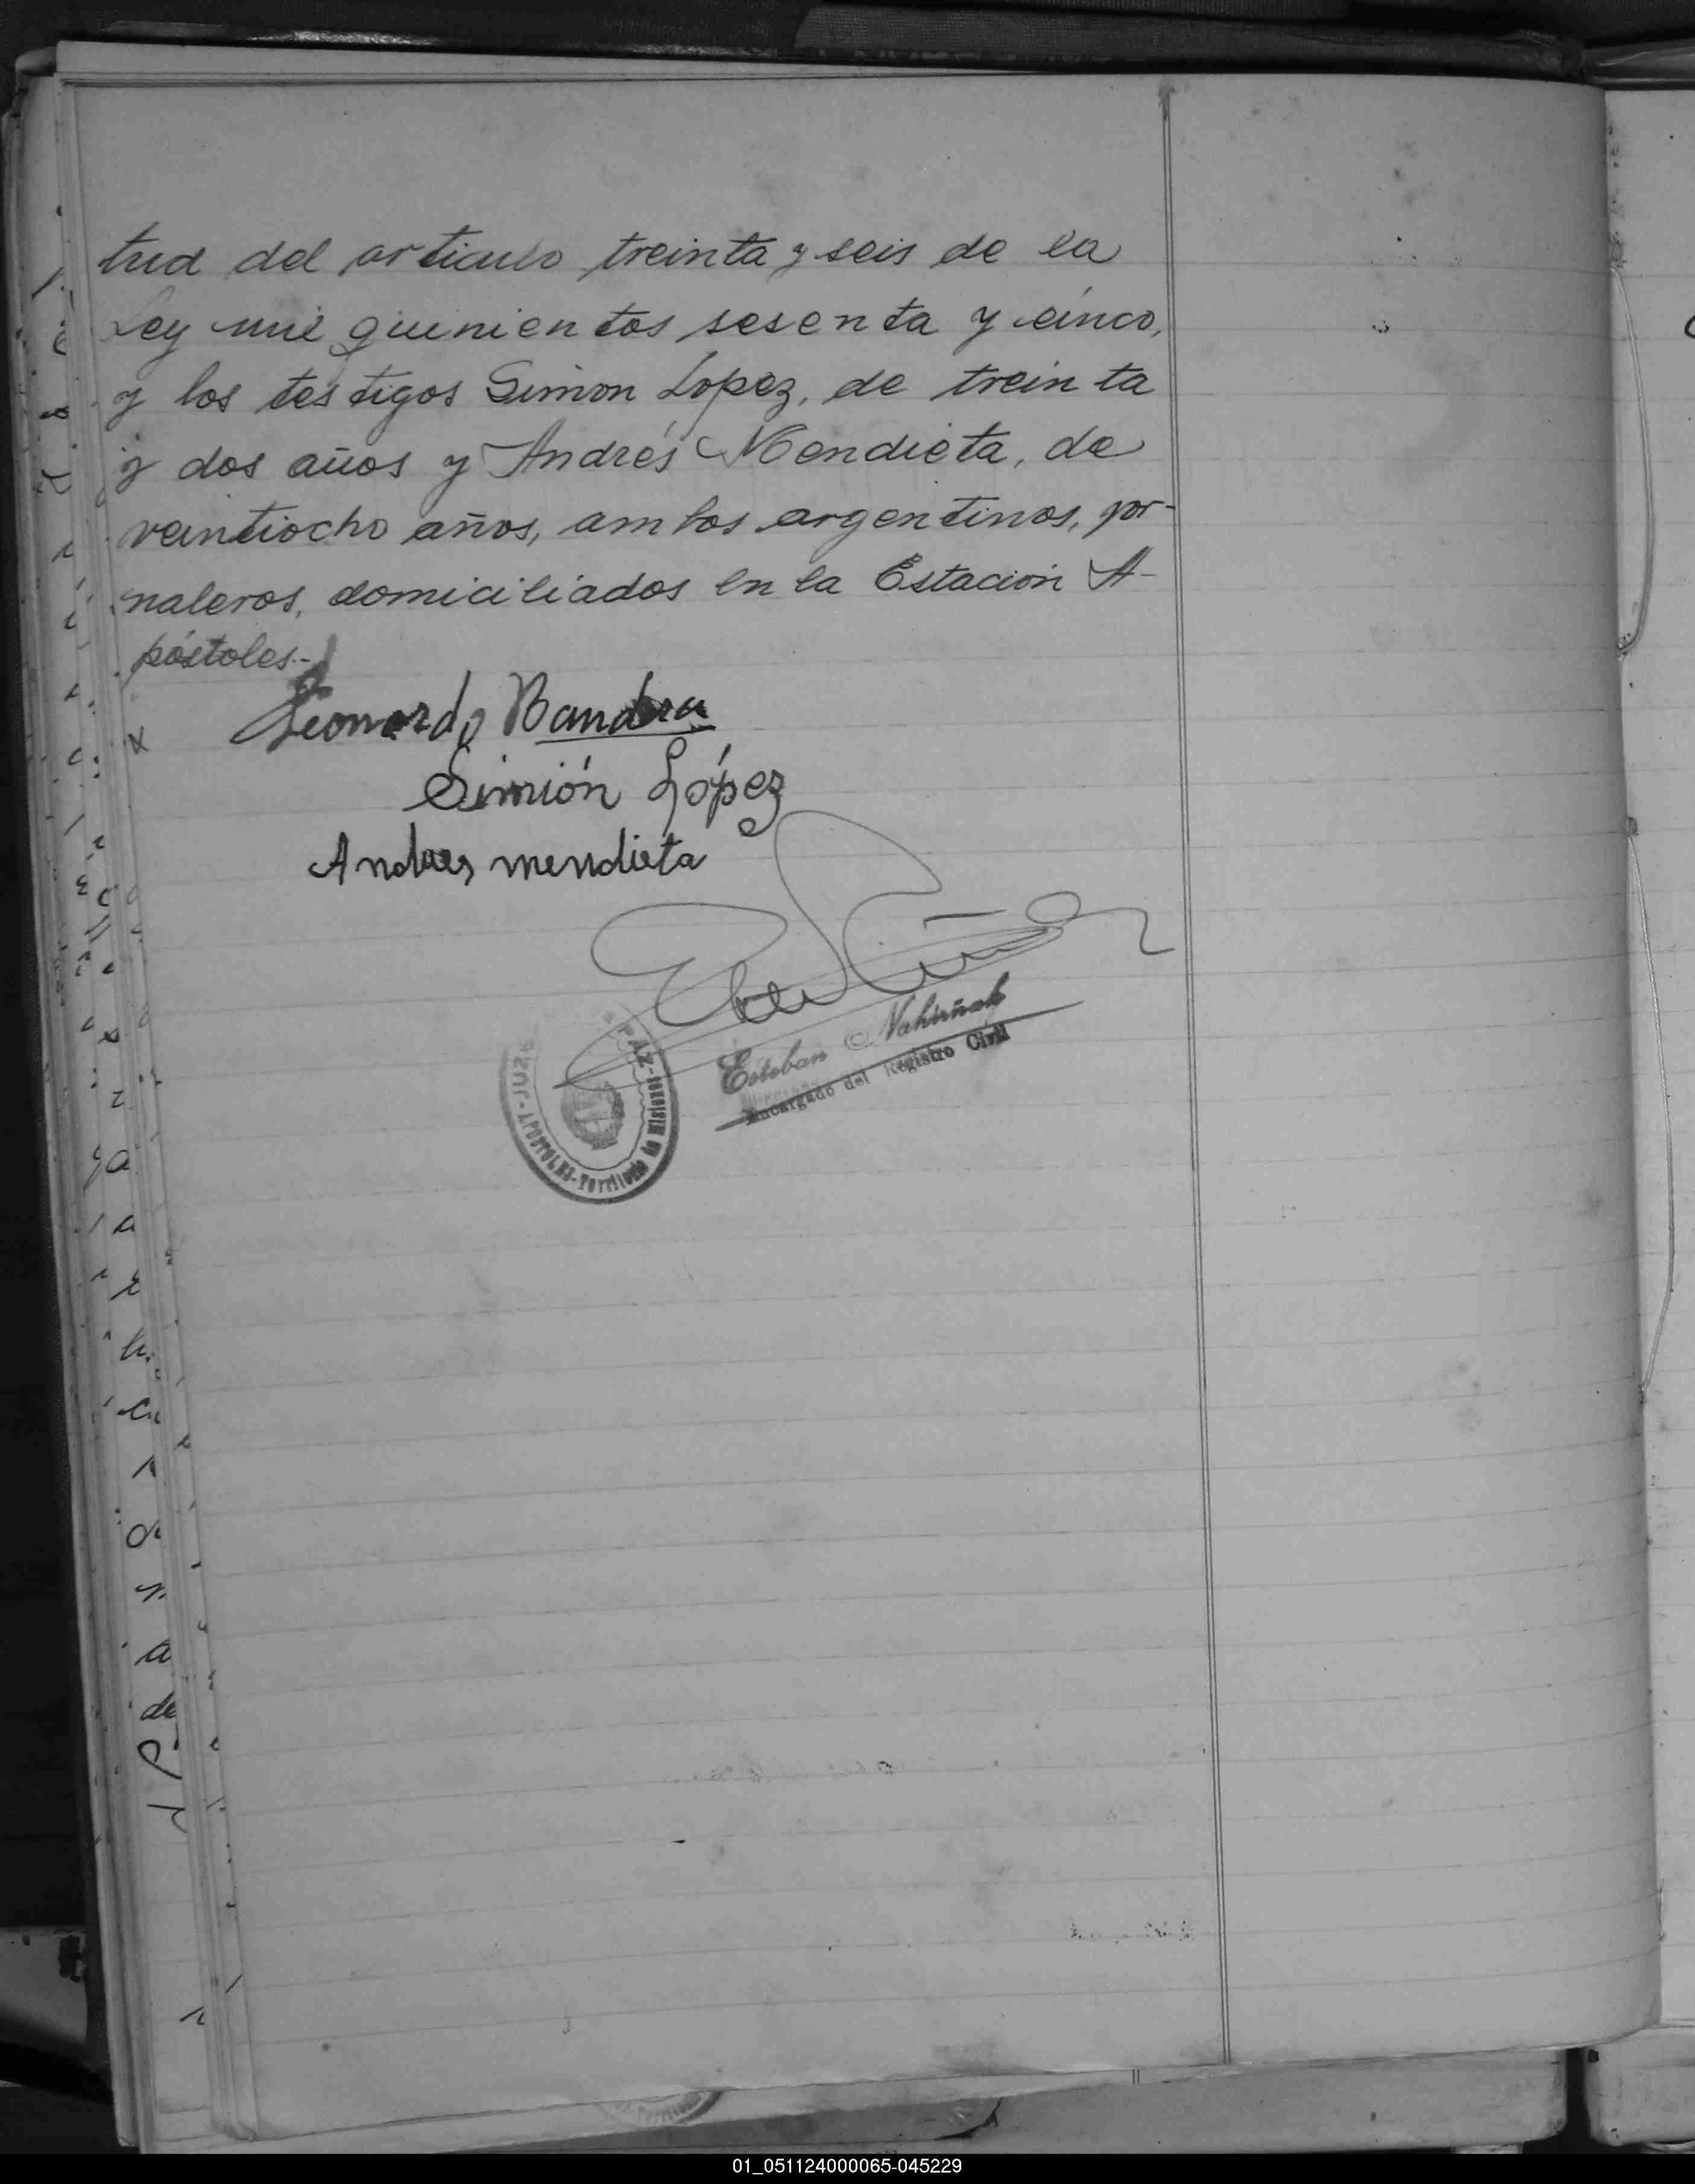 tud del articulo treinta y seis de la
Ley mil quinientos sesenta y cinco,
y los testigos Simon Lopez, de treinta
y dos años y Andrés Mendieta, de
veintiocho años, ambos argentinos, jor-
naleros, domiciliados en la Estación A-
póstoles.-
Leonardo Bandera
Simión López
Andres mendieta
Esteban Nahirñak
Encargado del Registro Civil
PAZ-
APOSTOLES-Territorio de Misiones
01_051124000065-045229